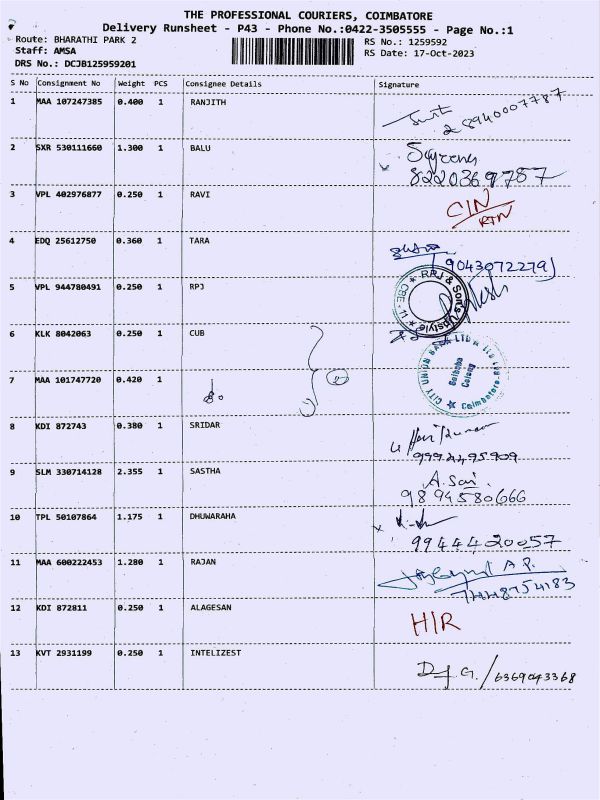 THE PROFESSIONAL COURIERS, COIMBATORE
Delivery Runsheet - P43 - Phone No.:0422-3505555 - Page No.:1
Route: BHARATHI PARK 2
RS No.: 1259592
Staff: AMSA
RS Date: 17-Oct-2023
DRS No.: DCJB125959201
S No Consignment No Weight PCS Consignee Details Signature
1 MAA 107247385 0.400 1 RANJITH
8940007787
2 SXR 530111660 1.300 1 BALU
8220369787
3 VPL 402976877 0.250 1 RAVI CIN/RTN
4 EDQ 25612750 0.360 1 TARA
9043072279
5 VPL 944780491 0.250 1 RPJ RPJ & Sons
6 KLK 8042063 0.250 1 CUB
CITY UNION BANK LTD
Saibaba
Colony
Coimbatore
7 MAA 101747720 0.420 1
8 KDI 872743 0.380 1 SRIDAR
9 SLM 330714128 2.355 1 SASTHA A. Sai
9894580666
10 TPL 50107864 1.175 1 DHUWARAHA
9944420057
11 MAA 600222453 1.280 1 RAJAN
12 KDI 872811 0.250 1 ALAGESAN HIR
13 KVT 2931199 0.250 1 INTELIZEST
6369043368